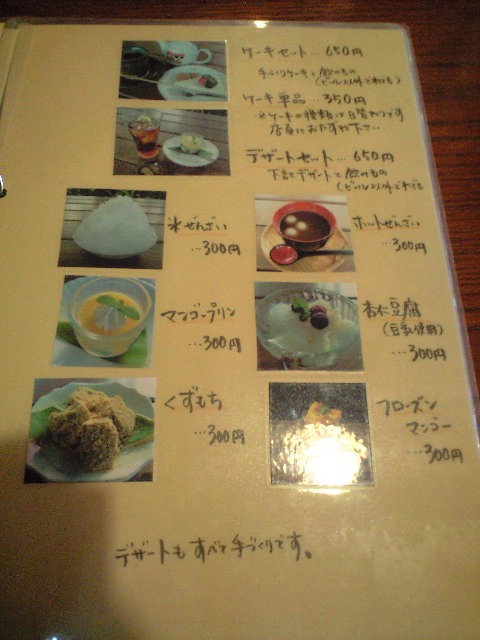 ケーキセット… 650円
手づくりケーキと飲みもの
(ビール以外どれでも)
ケーキ単品… 350円
※ケーキの種類は日替わりです
店員におたずね下さい
デザートセット… 650円
下記デザートと飲みもの
(ビール以外どれでも
氷ぜんざい
…300円
ホットぜんざい
…300円
マンゴープリン
…300円
杏仁豆腐
(豆乳使用)
…300円
くずもち
…300円
フローズン
マンゴー
…300円
デザートもすべて手づくりです。